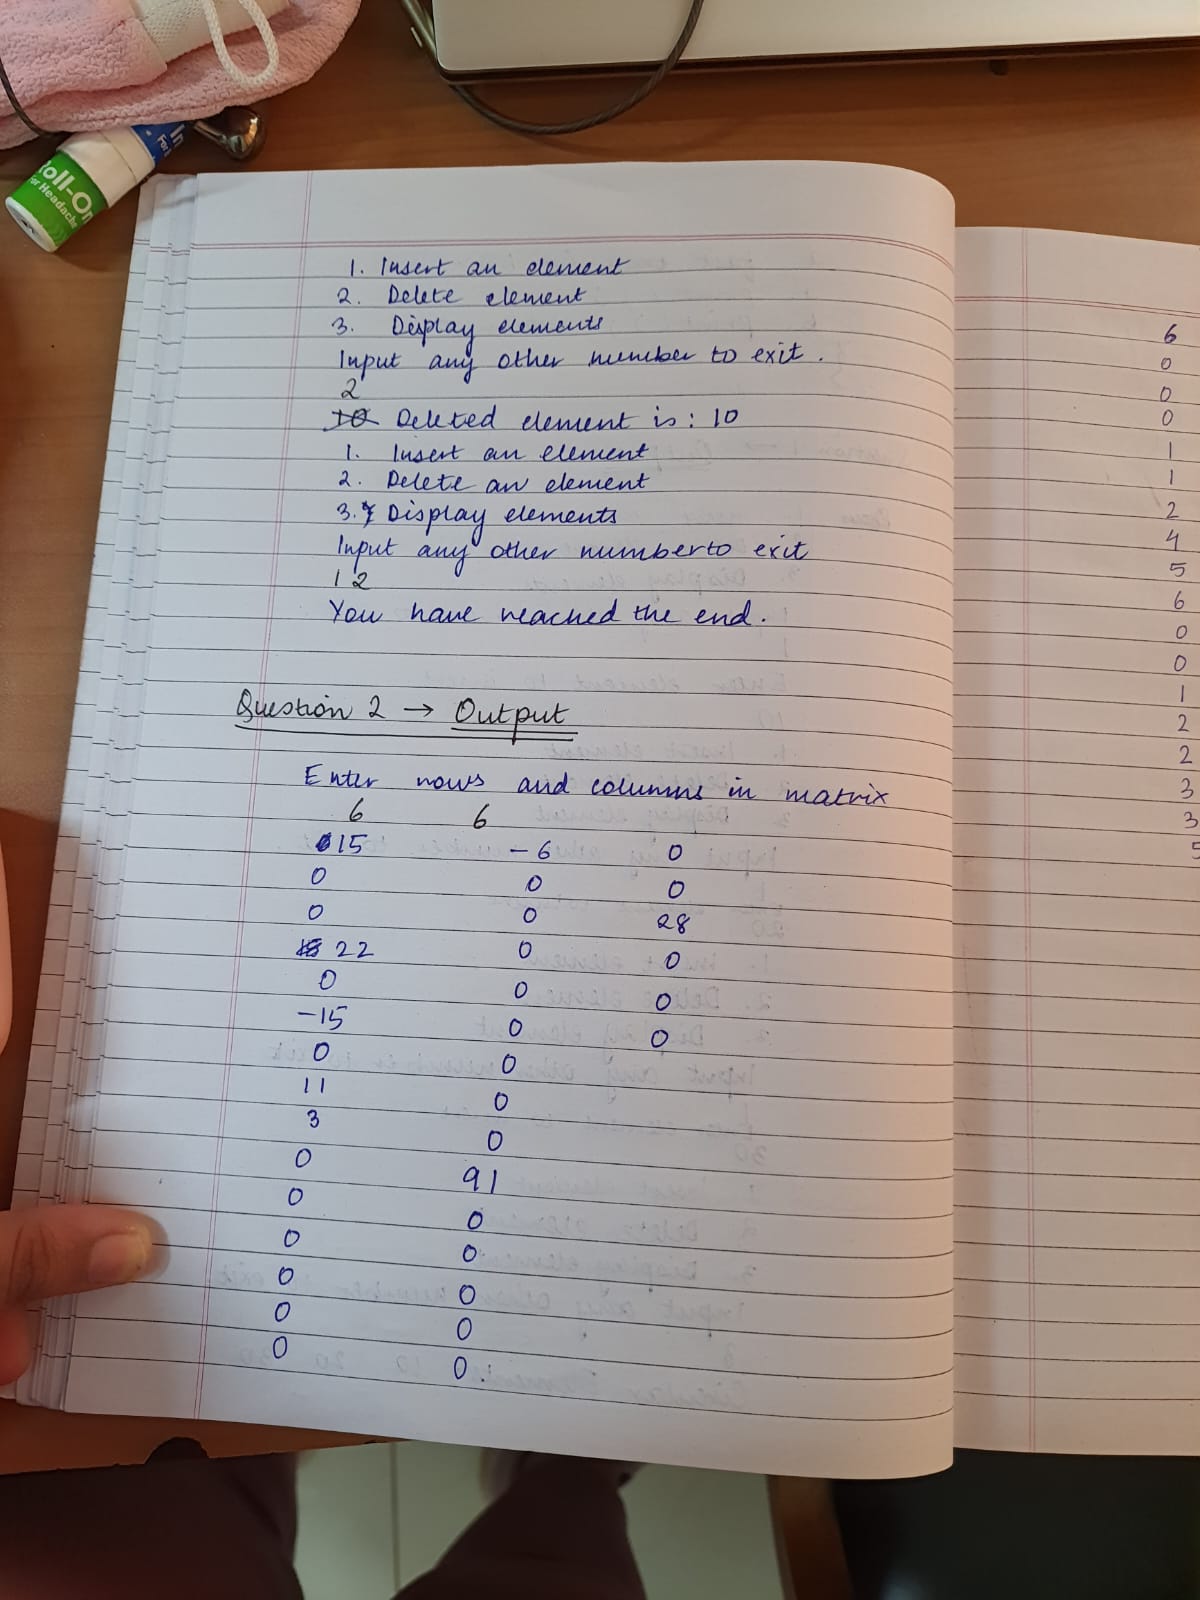 Roll-On
For Headache
In
For
1. Insert an element
2. Delete element
3. Display elements
Input any other number to exit.
2
Deleted element is: 10
1. Insert an element
2. Delete an element
3. Display elements
Input any other number to exit
12
You have reached the end.
Question 2 → Output
Enter rows and columns in matrix
6 6
15 -6 0
0 0 0
0 0 28
22 0 0
0 0 0
-15 0 0
0 0
11 0
3 0
0 91
0 0
0 0
0 0
0 0
0 0
6
0
0
0
1
1
2
4
5
6
0
0
1
2
2
3
3
5